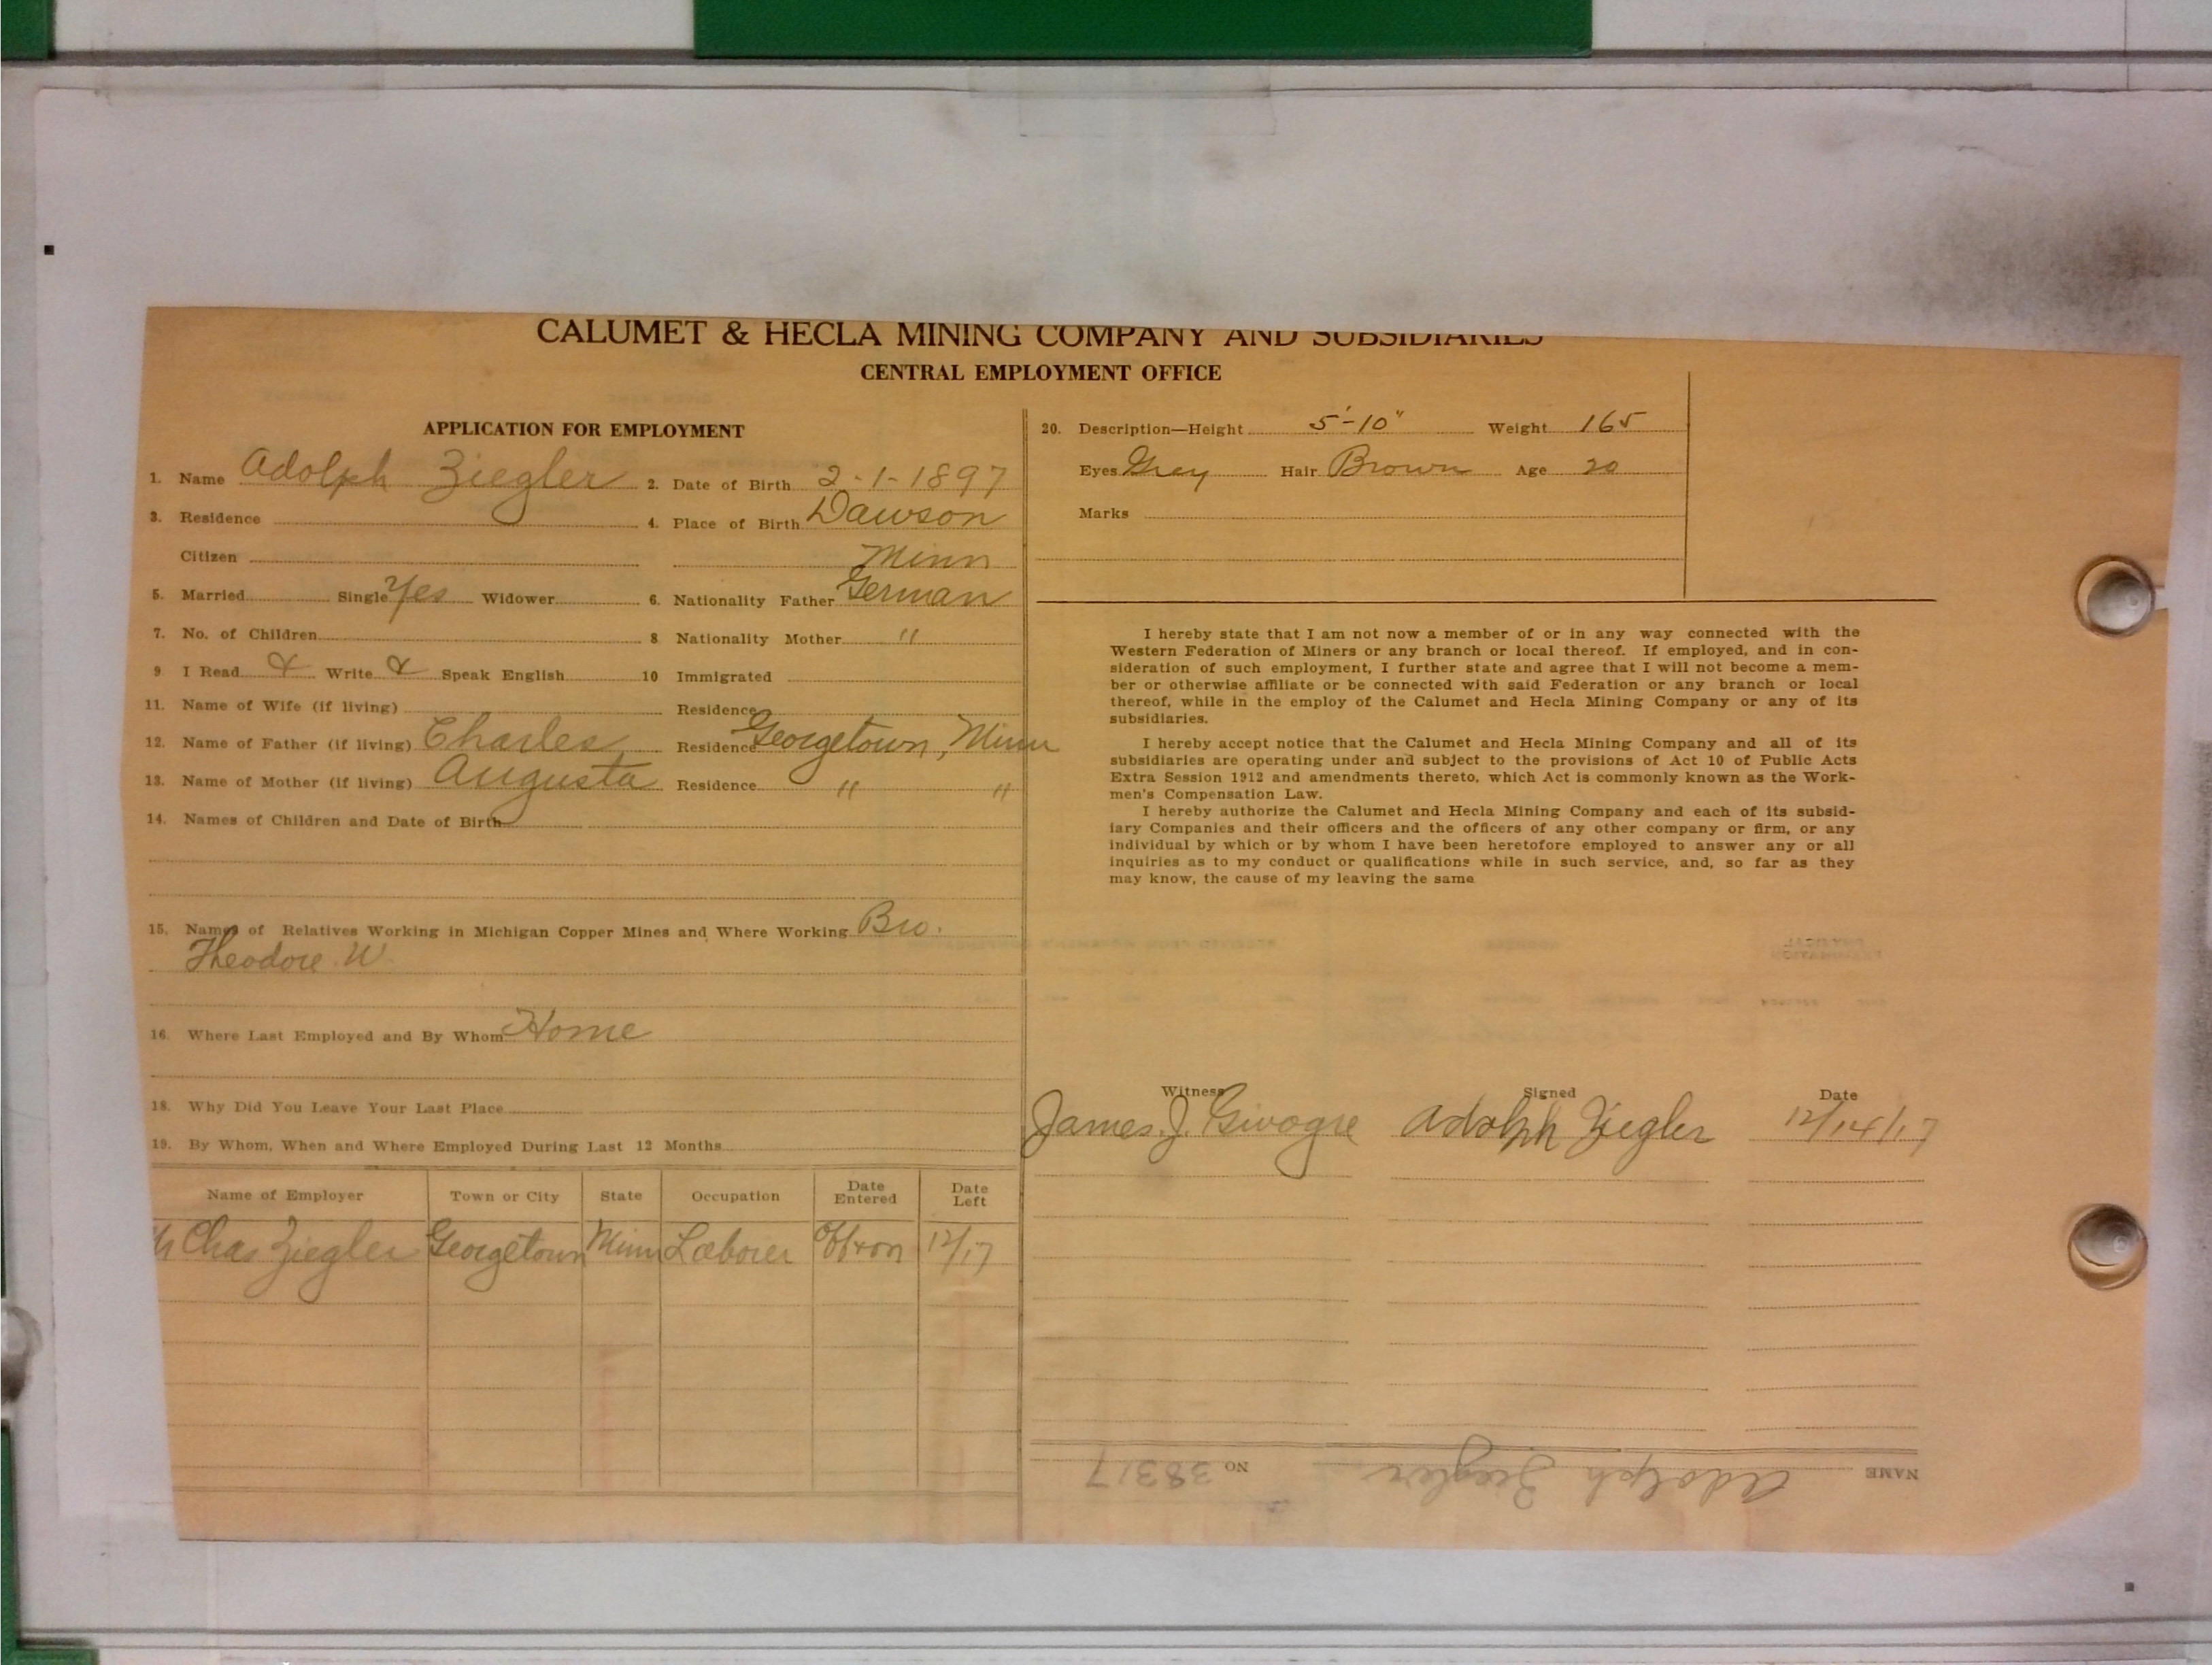 CALUMET & HECLA MINING COMPANY AND SUBSIDIARIES
CENTRAL EMPLOYMENT OFFICE
APPLICATION FOR EMPLOYMENT
1. Name Adolph Ziegler 2. Date of Birth 2-1-1897
3. Residence 4. Place of Birth Dawson
Citizen Minn
5. Married Single Yes Widower 6. Nationality Father German
7. No. of Children 8 Nationality Mother "
9 I Read & Write & Speak English 10 Immigrated
11. Name of Wife (if living) Residence
12. Name of Father (if living) Charles Residence Georgetown, Minn
13. Name of Mother (if living) Augusta Residence " "
14. Names of Children and Date of Birth
15. Names of Relatives Working in Michigan Copper Mines and Where Working Bro.
Theodore W.
16. Where Last Employed and By Whom Home
18. Why Did You Leave Your Last Place
19. By Whom, When and Where Employed During Last 12 Months
Name of Employer Town or City State Occupation Date Entered Date Left
Chas Ziegler Georgetown Minn Laborer Off & on 12/17
20. Description—Height 5'-10" Weight 165
Eyes Gray Hair Brown Age 20
Marks
I hereby state that I am not now a member of or in any way connected with the
Western Federation of Miners or any branch or local thereof. If employed, and in con-
sideration of such employment, I further state and agree that I will not become a mem-
ber or otherwise affiliate or be connected with said Federation or any branch or local
thereof, while in the employ of the Calumet and Hecla Mining Company or any of its
subsidiaries.
I hereby accept notice that the Calumet and Hecla Mining Company and all of its
subsidiaries are operating under and subject to the provisions of Act 10 of Public Acts
Extra Session 1912 and amendments thereto, which Act is commonly known as the Work-
men's Compensation Law.
I hereby authorize the Calumet and Hecla Mining Company and each of its subsid-
iary Companies and their officers and the officers of any other company or firm, or any
individual by which or by whom I have been heretofore employed to answer any or all
inquiries as to my conduct or qualifications while in such service, and, so far as they
may know, the cause of my leaving the same
Witness Signed Date
James J. Adolph Ziegler 12/14/17
NAME Adolph Ziegler NO 38317